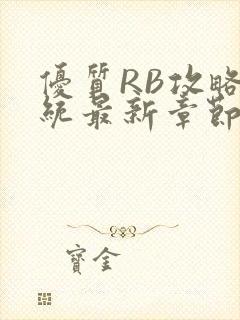 優質RB攻略
統最新章節
寶金